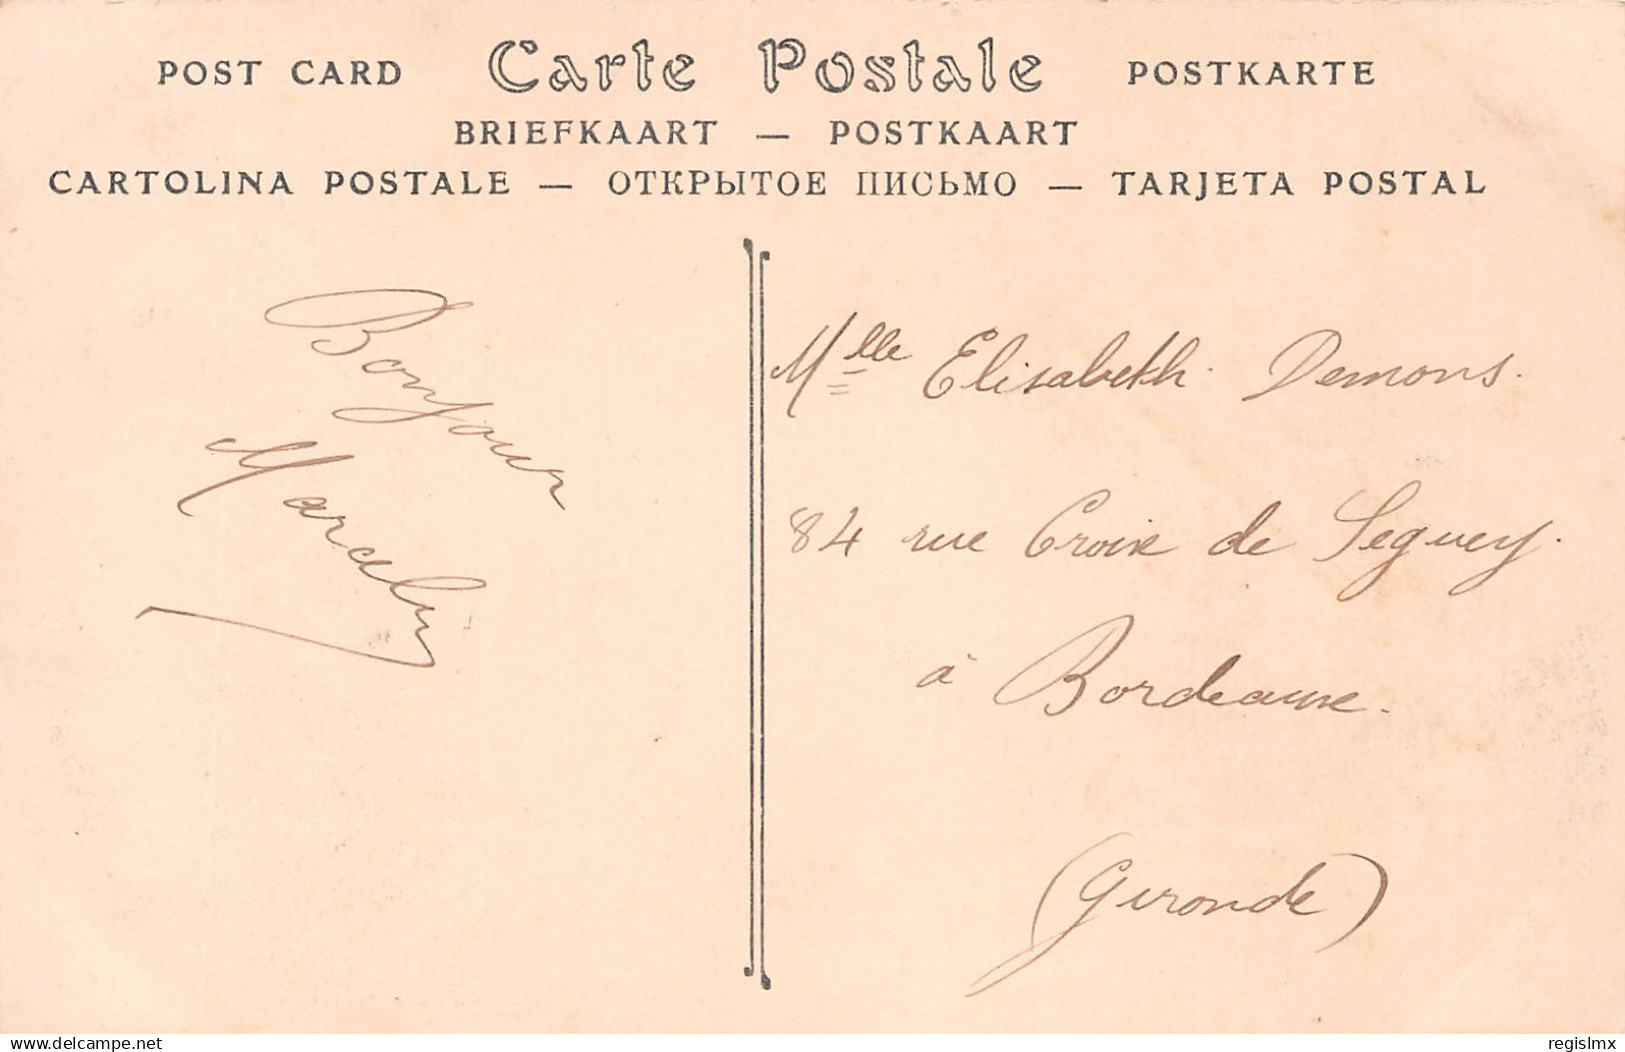 POST CARD Carte Postale POSTKARTE
BRIEFKAART — POSTKAART
CARTOLINA POSTALE — ОТКРЫТОЕ ПИСЬМО — TARJETA POSTAL
Bonjour
Marcelin
Mlle Elisabeth. Demons.
84 rue Croix de Seguey.
à Bordeaux.
(Gironde)
www.delcampe.net
regislmx